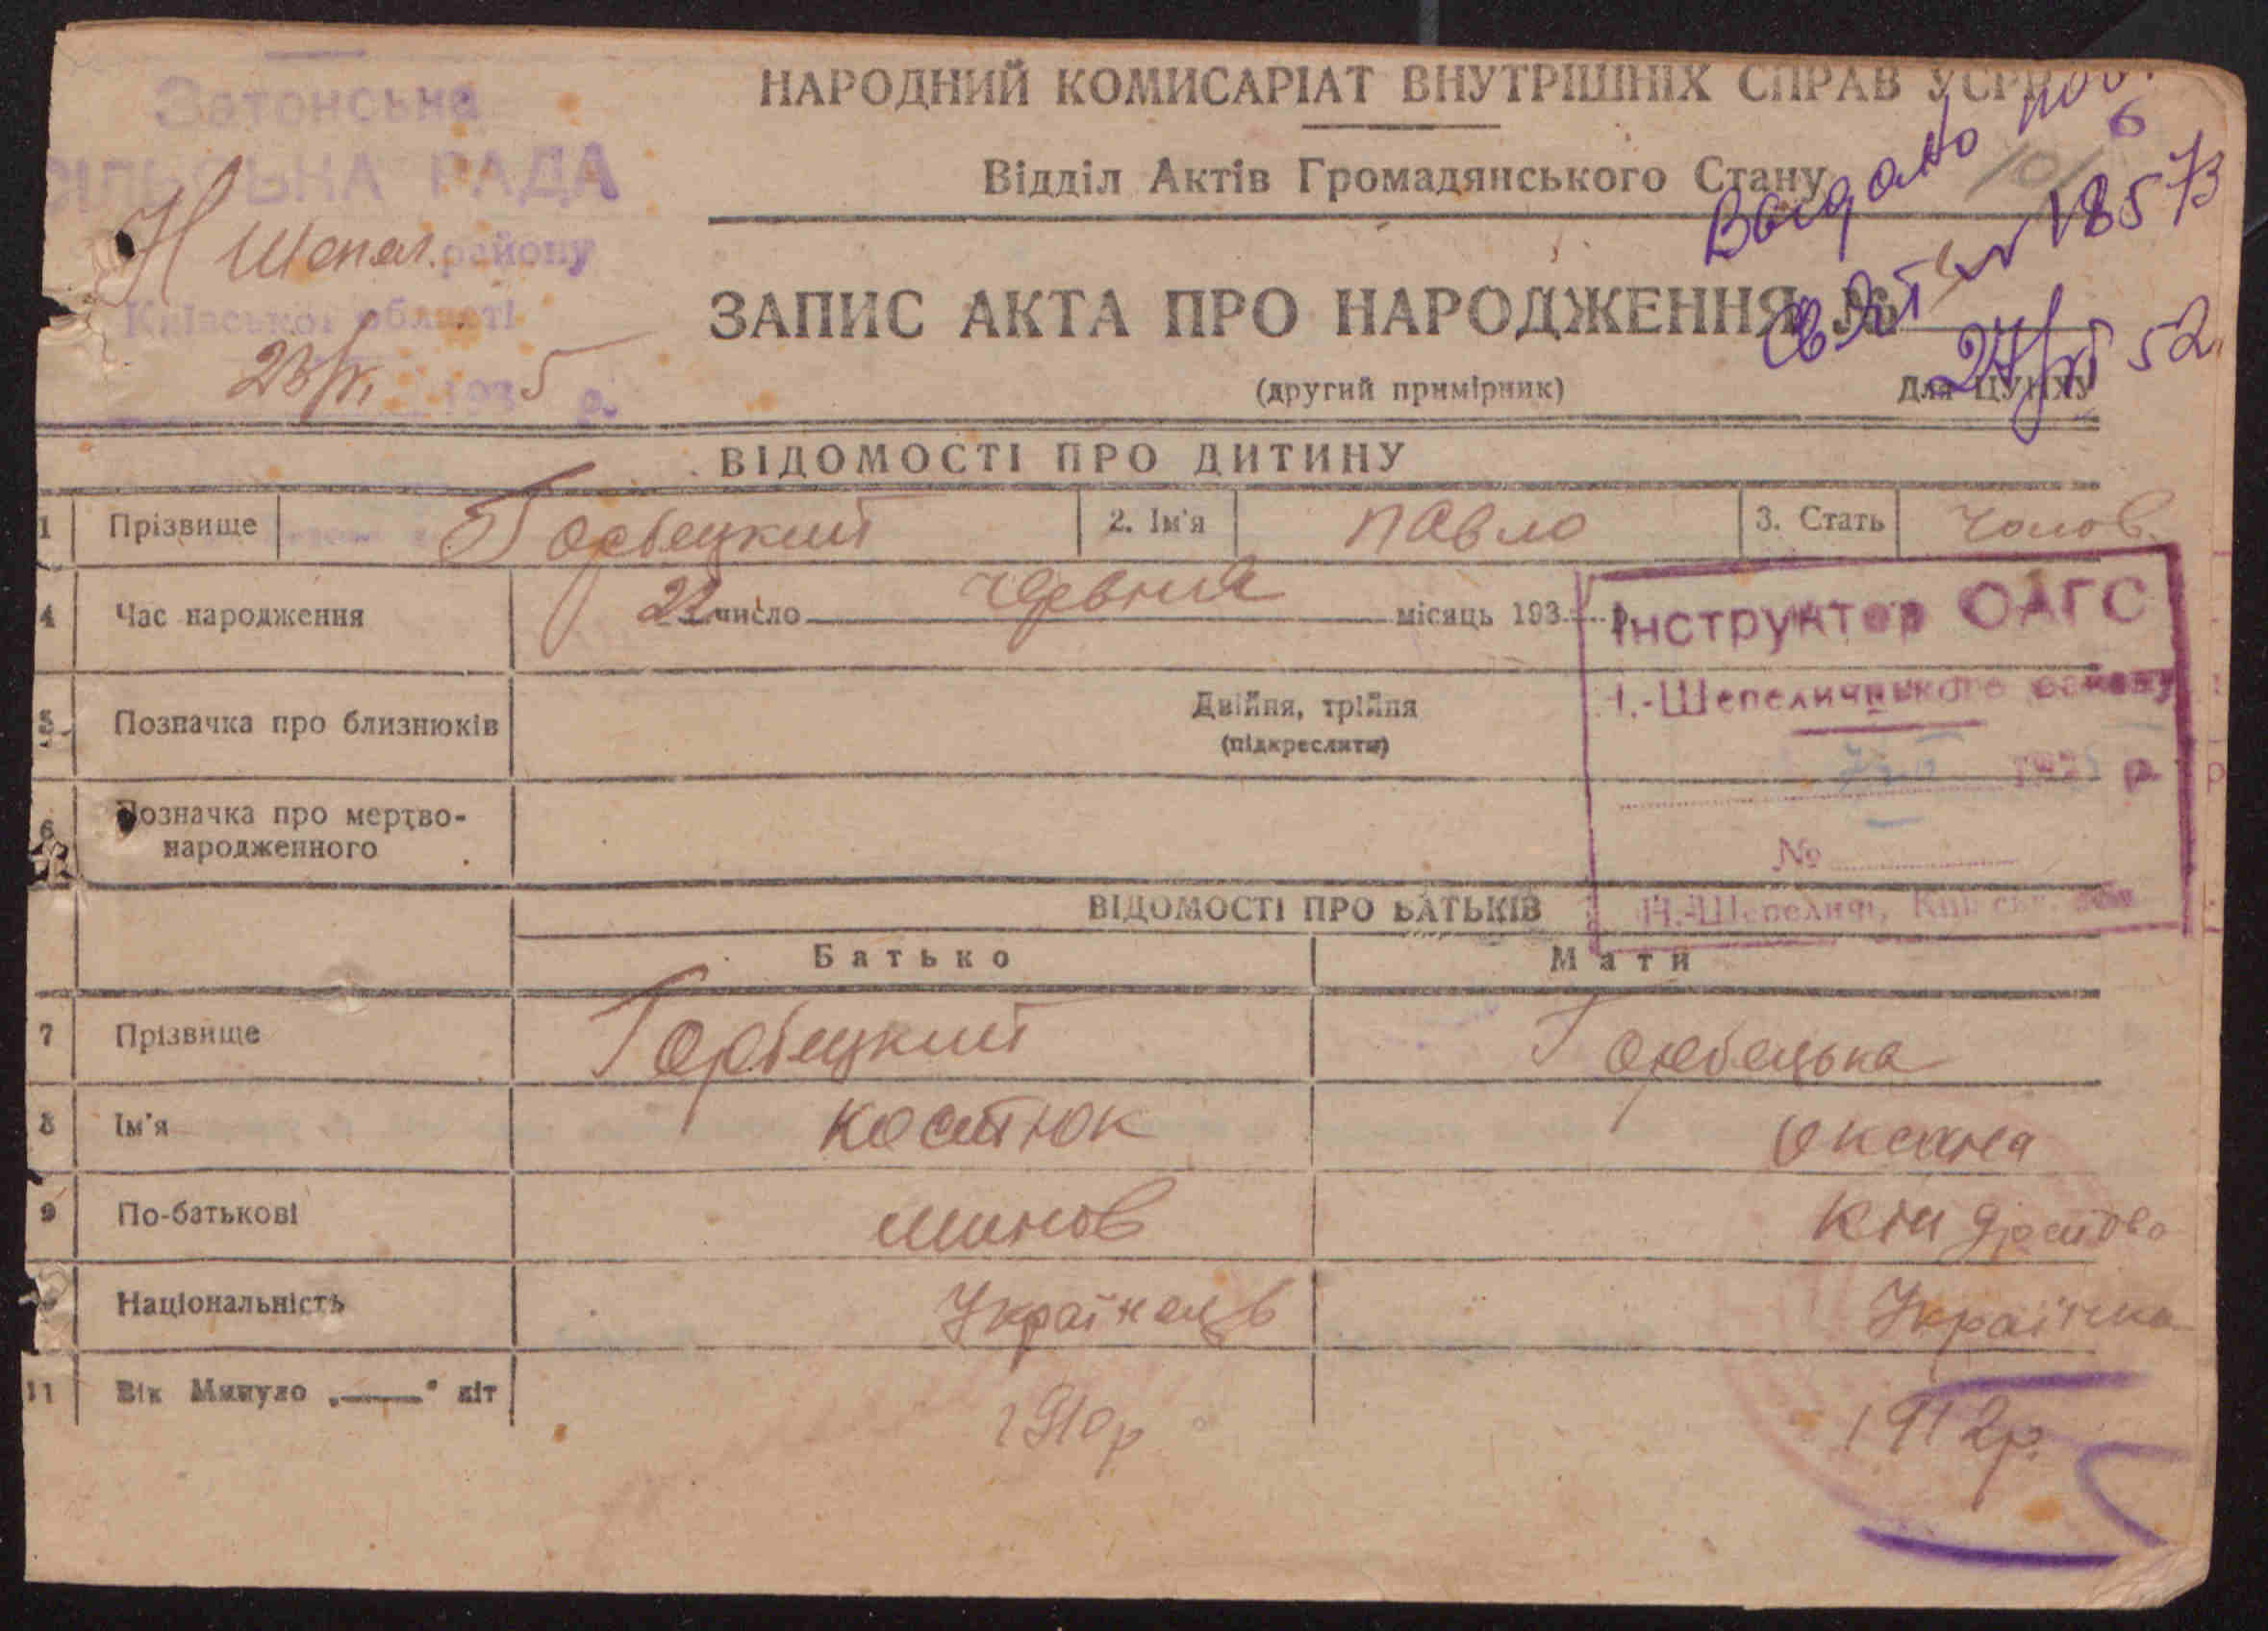 Затонська
СІЛЬСЬКА РАДА
Н Шепел. району
Київської області
23/VI 1935 р.
НАРОДНИЙ КОМИСАРІАТ ВНУТРІШНІХ СПРАВ УСРР
Відділ Актів Громадянського Стану
Видано пов.
6
101
св. 18573
27/XI 52
ЗАПИС АКТА ПРО НАРОДЖЕННЯ №
(другий примірник)
Для ЦУНХУ
ВІДОМОСТІ ПРО ДИТИНУ
1 Прізвище Горбецкий 2. Ім'я Павло 3. Стать Чолов.
4 Час народження 22 число червня місяць 193 р.
Інструктор ОАГС
Н.-Шепелицького району
193 р.
№
Н.-Шепеличі, Київськ. обл.
5. Позначка про близнюків Двійня, трійня
(підкреслити)
6 Позначка про мертво-
народженного
ВІДОМОСТІ ПРО БАТЬКІВ
Батько Мати
7 Прізвище Горбецкий Горбецька
8 Ім'я Костюк Оксана
9 По-батькові Минов Кіндратова
10 Національність Українець Українка
11 Вік Минуло „—" літ 1910р 1912р.